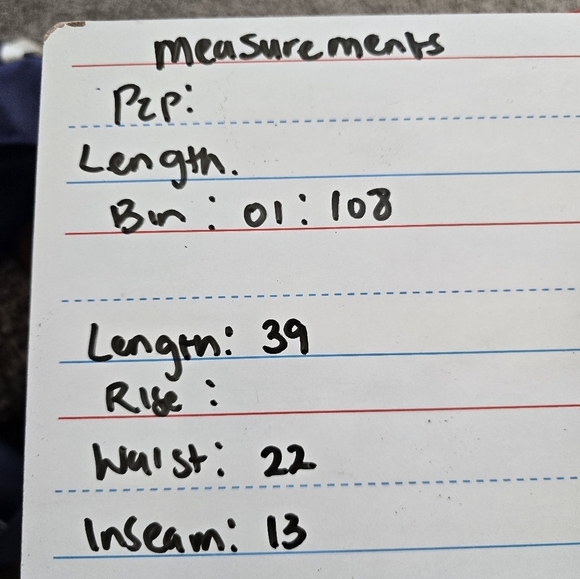 Measurements
P2P:
Length.
Bin: 01: 108
Length: 39
Rise:
Waist: 22
Inseam: 13